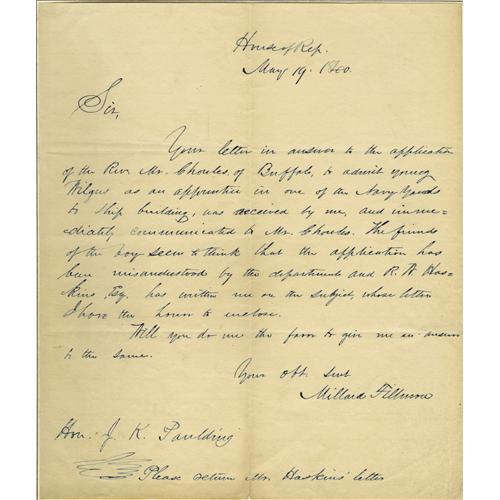 House of Rep.
May 19. 1840.
Sir,
Your letter in answer to the application
of the Rev. Mr. Choules, of Buffalo, to admit young
Wilgus as an apprentice in one of the Navy Yards
to ship building, was received by me, and imme-
diately communicated to Mr. Choules. The friends
of the boy seem to think that the application has
been misunderstood by the department and R. W. Has-
kins, Esq. has written me on the subject, whose letter
I have the honor to inclose.
Will you do me the favor to give me an answer
to the same.
Your obt. Servt
Millard Fillmore
Hon. J. K. Paulding
Please return Mr. Haskins' letter